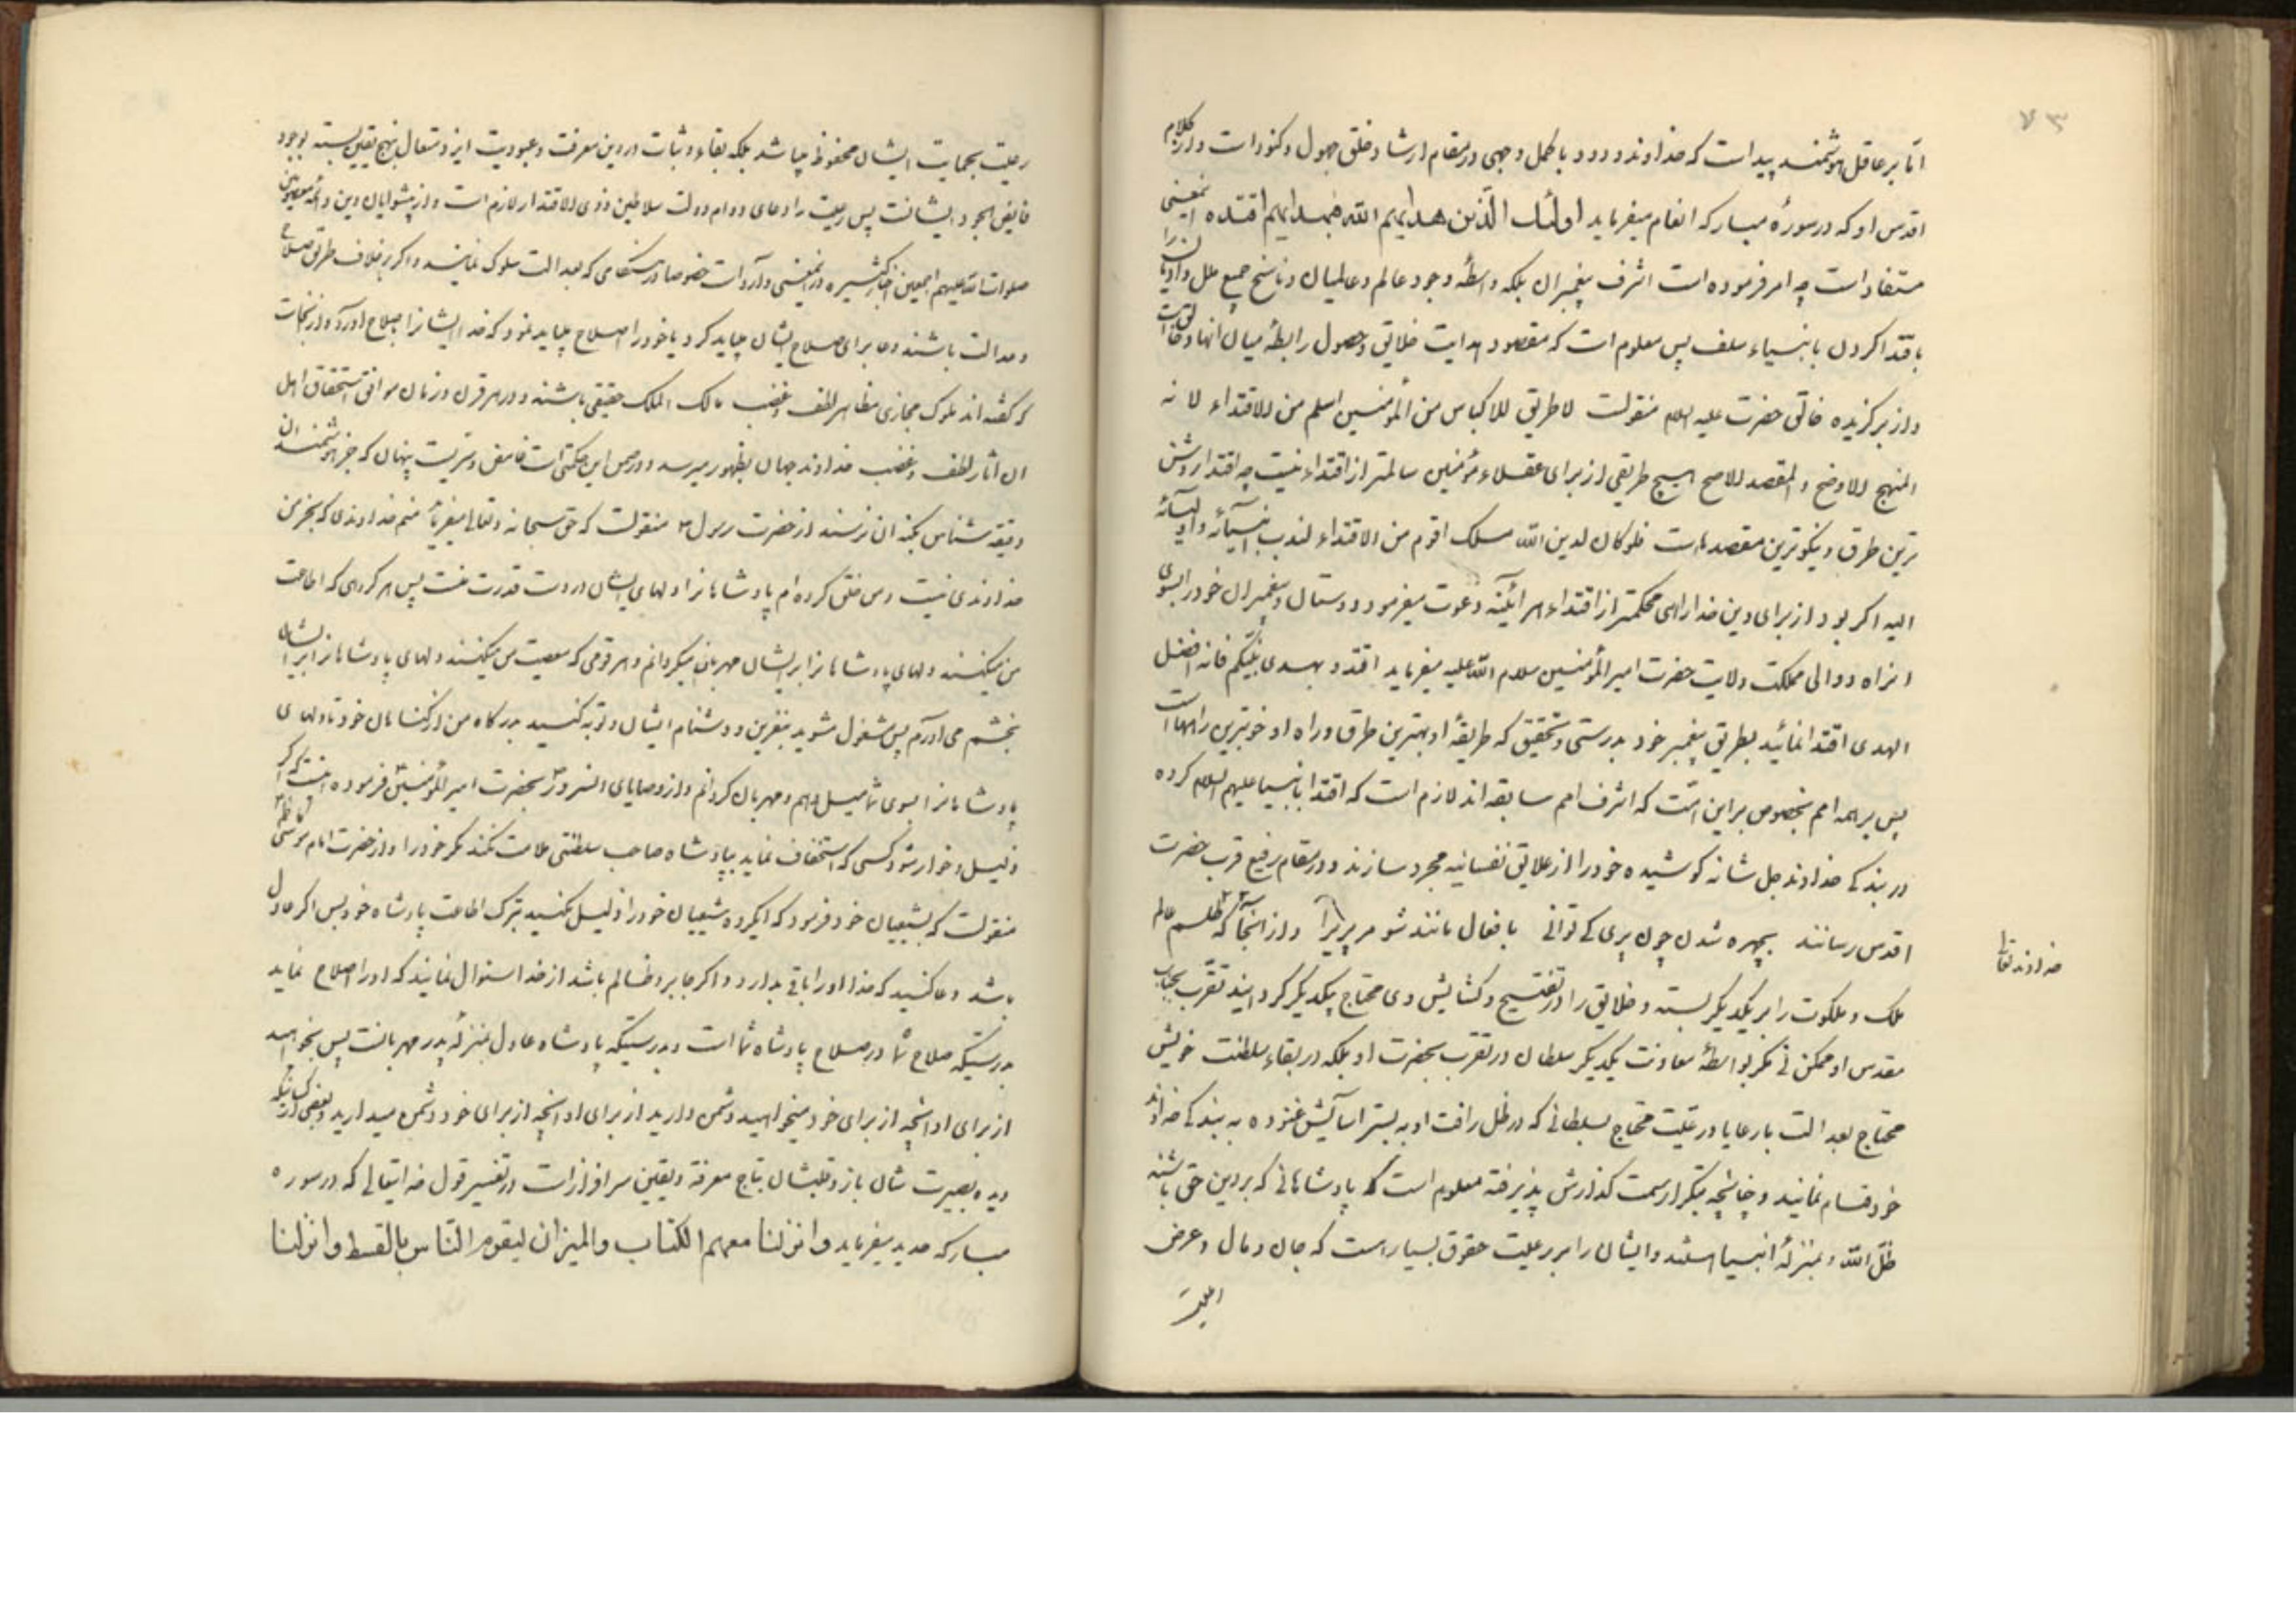 ۷۳
اما بر عاقل هوشمند پیداست که خداوند ودود باکمل وجهی در مقام ارشاد خلق جهول و کنود است و از کلام
اقدس او که در سورهٔ مبارکه انعام میفرماید اولئک الذین هدیهم الله فبهدیهم اقتده اینمعنی
مستفاد است چه امر فرموده است اشرف پیغمبران بلکه واسطهٔ وجود عالم و عالمیان و ناسخ جمیع ملل و ادیان را
باقتدا کردن بانبیاء سلف پس معلوم است که مقصود هدایت خلایق و حصول رابطهٔ میان انها و خالق است
و از برگزیده خالق حضرت علیه السلام منقولست لا طریق للاکیاس من المؤمنین اسلم من الاقتداء لانه
المنهج الاوضح و المقصد الاصح هیچ طریقی از برای عقلاء مؤمنین سالمتر از اقتداء نیست چه اقتدا روشن
ترین طرق و نیکوترین مقصدهاست فلو کان لدین الله مسلک اقوم من الاقتداء لندب انبیآئه و اولیآئه
الیه اگر بود از برای دین خدا راهی محکمتر از اقتداء هر آئینه دعوت میفرمود دوستان و پیغمبران خود را بسوی
انراه و والی مملکت ولایت حضرت امیر المؤمنین سلام الله علیه میفرماید اقتدوا بهدی نبیکم فانه افضل
الهدی اقتدا نمائید بطریق پیغمبر خود بدرستی و تحقیق که طریقهٔ او بهترین طرق و راه او خوبترین راهها است
پس بر همه امم بخصوص بر این امت که اشرف امم سابقه اند لازم است که اقتدا بانبیا علیهم السلام کرده
در بندگی خداوند جل شانه کوشیده خود را از علایق نفسانیه مجرد سازند و در مقام رفیع قرب حضرت
اقدس رسانند بچهره شدن چون پری کی توانی بافعال مانند شو مر پری را و از انجا که طلسم عالم
خداوند تعالی
ملک و ملکوت را بر یکدیگر بسته و خلایق را در تفتیح و گشایش وی محتاج یکدیگر گردانیده تقرب بجناب
مقدس او ممکن نی مگر بواسطهٔ معاونت یکدیگر سلطان در تقرب بحضرت او بلکه در بقاء سلطنت خویش
محتاج بعدالت با رعایا و رعیت محتاج بسلطانی که در ظل رافت او به بستر اسایش غنوده به بندگی خداوند
خود قیام نمایند و چنانچه بتکرار سمت گذارش پذیرفته معلوم است که پادشاهانی که بر دین حق باشند
ظل الله و بمنزلهٔ انبیا هستند و ایشان را بر رعیت حقوق بسیار است که جان و مال و عرض
رعیت بحمایت ایشان محفوظ میباشد بلکه بقاء و ثبات در دین معرفت و عبودیت ایزد متعال بنهج یقین بسته بوجود
فایض الجود ایشانست پس رعیت را دعای دوام دولت سلاطین ذوی الاقتدار لازم است و از پیشوایان دین و ائمه معصومین
صلوات الله علیهم اجمعین اخبار کثیره در اینمعنی وارد است خصوصا در هنگامی که بعدالت سلوک نمایند و اگر بر خلاف طریق صلاح
و عدالت باشند دعا برای صلاح ایشان میباید کرد یا خود را اصلاح میباید نمود که خدا ایشانرا بصلاح اورد و از نجاست
که گفته اند ملوک مجازی مظاهر لطف و غضب مالک الملک حقیقی باشند و در هر قرن و زمان موافق استحقاق اهل
ان اثار لطف و غضب خداوند جهان بظهور میرسد و در ضمن این حکمتی است غامض و سریست پنهان که جز هوشمندان
دقیقه شناس بکنه ان نرسند از حضرت رسول منقولست که حق سبحانه و تعالی میفرماید منم خداوندی که بجز من
خداوندی نیست و من خلق کرده ام پادشاهانرا و دلهای ایشان در دست قدرت منست پس هر گروهی که اطاعت
من میکنند دلهای پادشاهانرا بر ایشان مهربان میگردانم و هر قومی که معصیت من میکنند دلهای پادشاهانرا بر ایشان
بخشم می اورم پس مشغول مشوید بنفرین و دشنام ایشان و توبه کنید بدرگاه من از گناهان خود تا دلهای
پادشاهانرا بسوی شما میل دهم و مهربان گردانم و از وصایای انسرور بحضرت امیر المؤمنین فرموده است که اگر
ذلیل و خوار شود کسی که استخفاف نماید بپادشاه صاحب سلطنتی ملامت نکند مگر خود را و از حضرت امام موسی کاظم
منقولست که بشیعیان خود فرمود که ایگروه شیعیان خود را ذلیل مکنید بترک اطاعت پادشاه خود پس اگر عادل
باشد دعا کنید که خدا او را باقی بدارد و اگر جابر و ظالم باشد از خدا استوال نمایند که او را اصلاح نماید
بدرستیکه صلاح شما در صلاح پادشاه شما است و بدرستیکه پادشاه عادل بمنزلهٔ پدر مهربانست پس بخواهید
از برای او انچه از برای خود میخواهید و دشمن دارید از برای او انچه از برای خود دشمن میدارید و بعضی از کسانیکه
دیده بصیرت شان باز و قلبشان بتاج معرفة و یقین سرافراز است در تفسیر قول خدایتعالی که در سوره
مبارکه حدید میفرماید و انزلنا معهم الکتاب والمیزان لیقوم الناس بالقسط و انزلنا